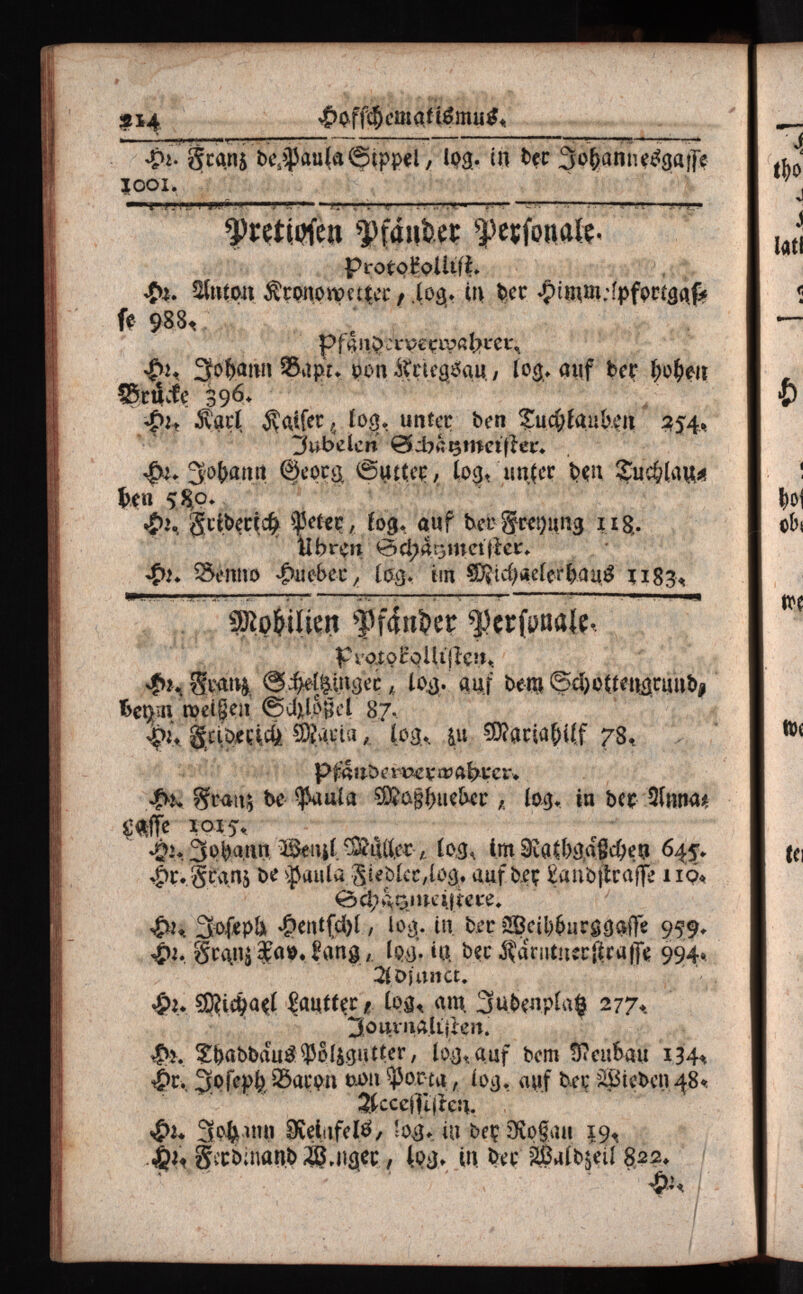 214 Hofschematismus.
Hr. Franz de Paula Sippel, log. in der Johannesgasse
1001.
Pretiosen Pfänder Personale.
Protokollist.
Hr. Anton Kronowetter, log. in der Himmelpfortgas-
se 988.
Pfänderverwahrer.
Hr. Johann Bapt. von Kriegsau, log. auf der hohen
Brücke 396.
Hr. Karl Kaiser, log. unter den Tuchlauben 254.
Jubelen Schätzmeister.
Hr. Johann Georg Sutter, log. unter den Tuchlau-
ben 580.
Hr. Friderich Peter, log. auf der Freyung 118.
Uhren Schätzmeister.
Hr. Benno Hueber, log. im Michaelerhaus 1183.
Mobilien Pfänder Personale.
Protokollisten.
Hr. Franz Schelzinger, log. auf dem Schottengrund,
beym weißen Schlößel 87.
Hr. Friderich Maria, log. zu Mariahilf 78.
Pfänderverwahrer.
Hr. Franz de Paula Moßhueber, log. in der Anna-
gasse 1015.
Hr. Johann Wenzl Müller, log. im Rathgäßchen 645.
Hr. Franz de Paula Fiedler, log. auf der Landstrasse 110.
Schätzmeistere.
Hr. Joseph Hentschl, log. in der Weihburggasse 959.
Hr. Franz Xav. Lang, log. in der Kärntnerstrasse 994.
Adjunct.
Hr. Michael Lautter, log. am Judenplatz 277.
Journalisten.
Hr. Thaddäus Pölzgutter, log. auf dem Neubau 134.
Hr. Joseph Baron von Porta, log. auf der Wieden 48.
Accessisten.
Hr. Johann Reinfels, log. in der Roßau 19.
Hr. Ferdinand log. in der Waldzeil 822.
Hr.